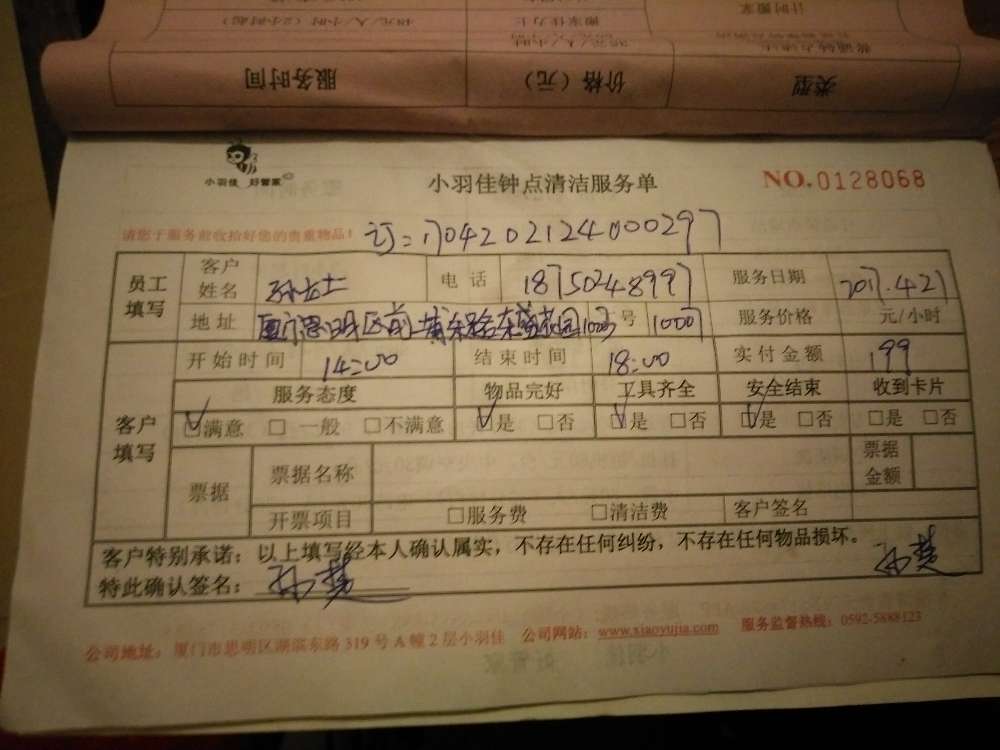 服务时间 价格（元） 类型
小羽佳 好管家
小羽佳钟点清洁服务单
NO.0128068
请您于服务前收拾好您的贵重物品！
订:1704202124000297
员工填写 客户姓名 孙女士 电话 18750248997 服务日期 2017.4.27
地址 厦门思明区前埔东路 号 服务价格 元/小时
客户填写 开始时间 14:00 结束时间 18:00 实付金额 199
服务态度 物品完好 工具齐全 安全结束 收到卡片
☑满意 □一般 □不满意 ☑是 □否 ☑是 □否 ☑是 □否 □是 □否
票据 票据名称 票据金额
开票项目 □服务费 □清洁费 客户签名
客户特别承诺：以上填写经本人确认属实，不存在任何纠纷，不存在任何物品损坏。
特此确认签名：
公司地址：厦门市思明区湖滨东路319号A幢2层小羽佳 公司网站：www.xiaoyujia.com 服务监督热线：0592-5888123